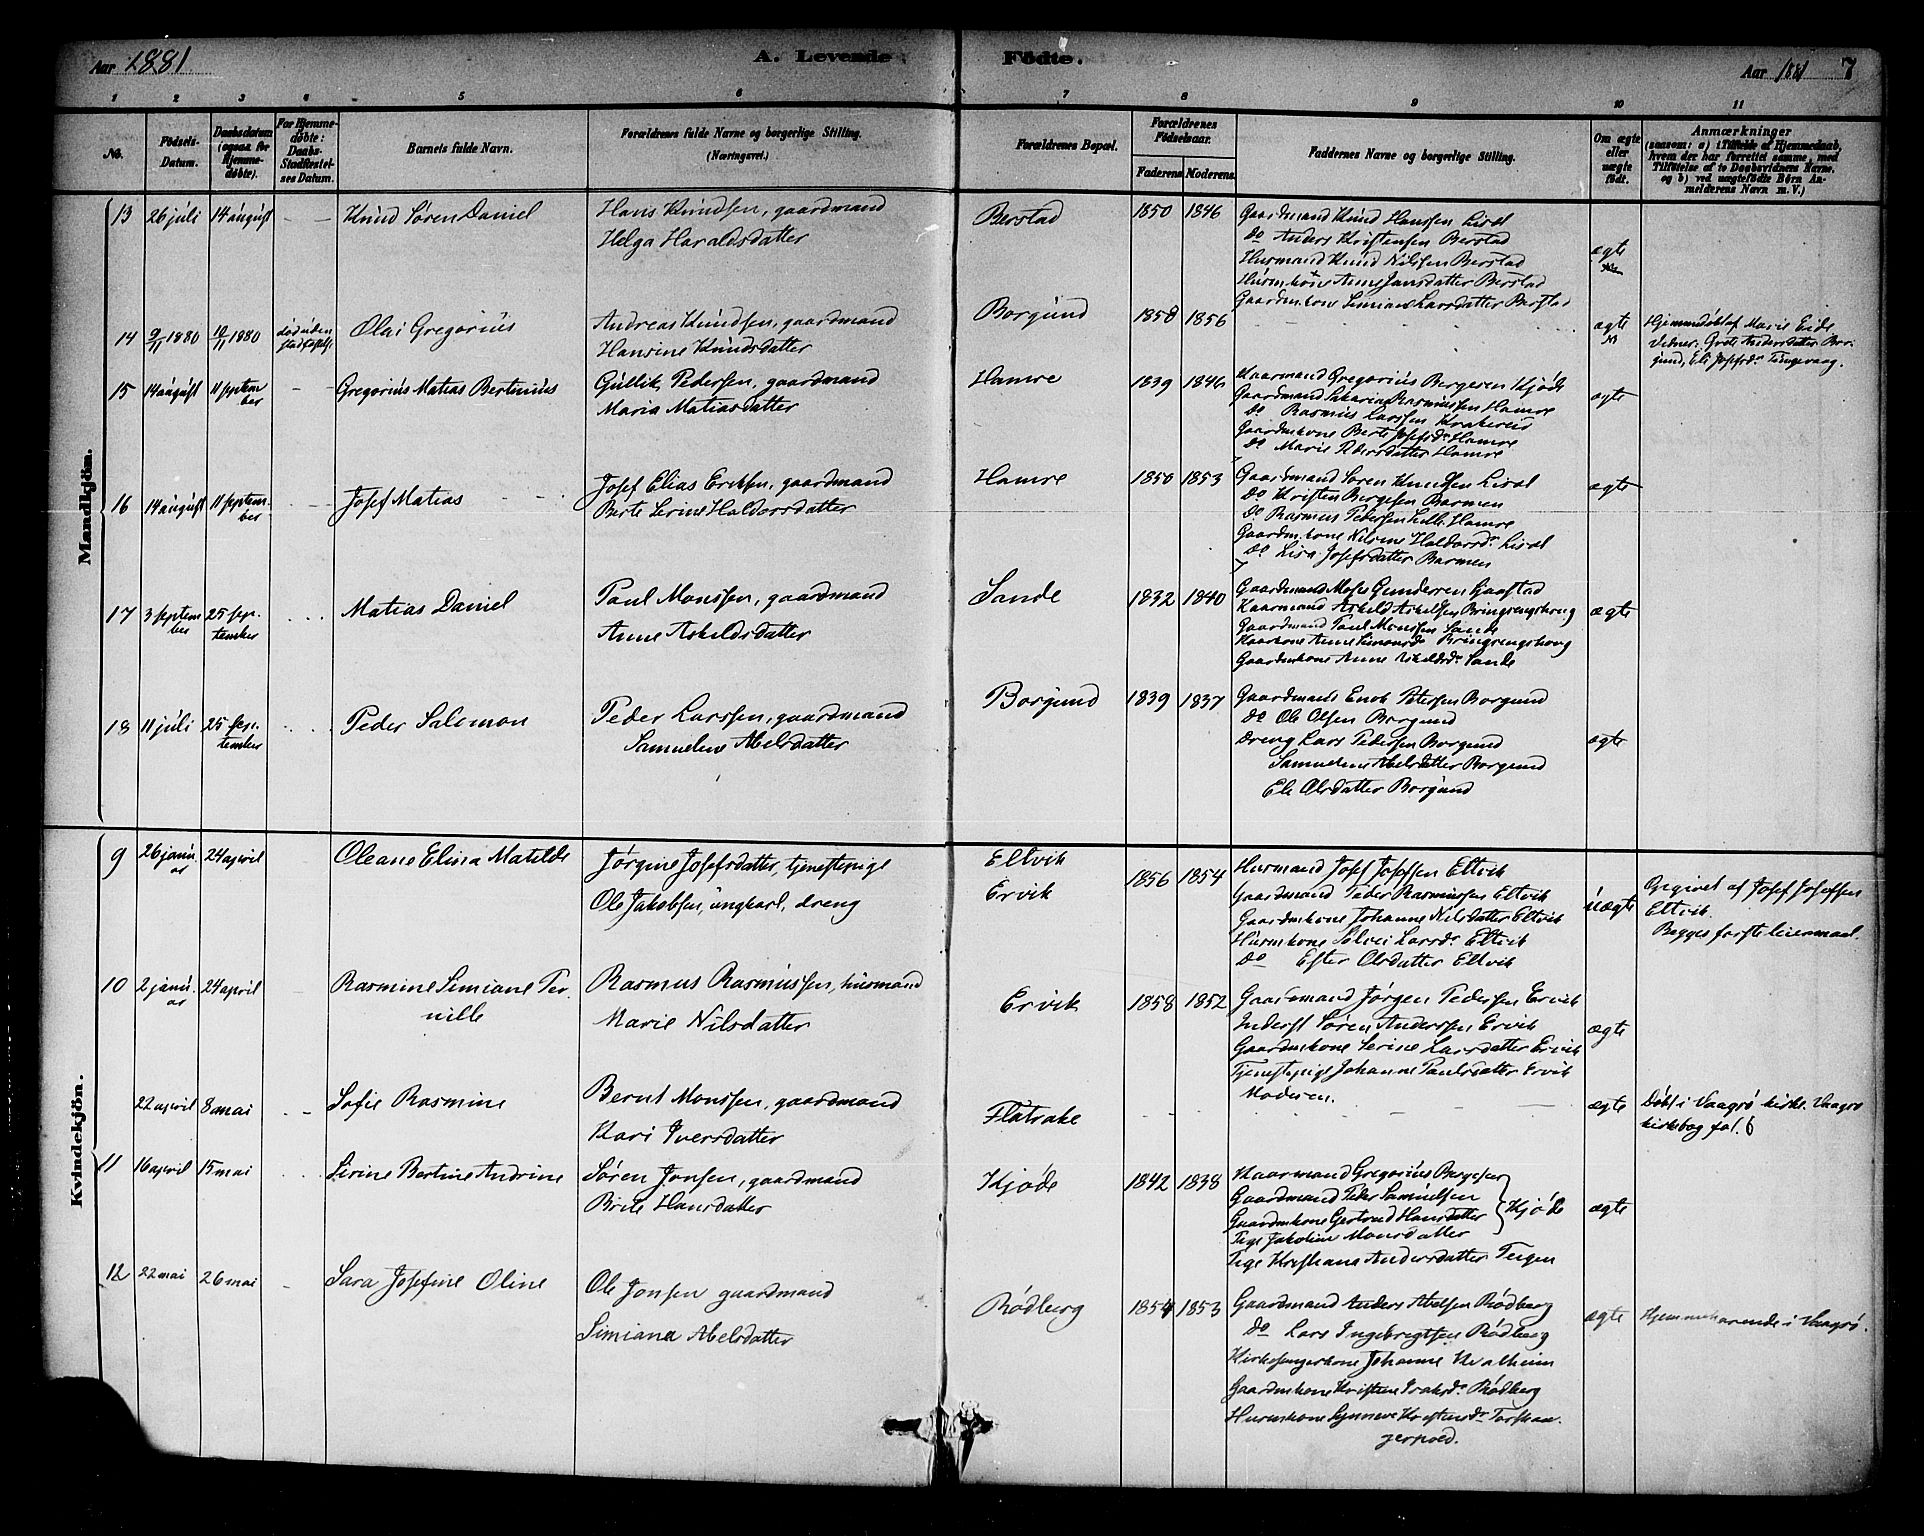 Aar 1881
A. Levende Födte.
Aar 1881 7
1 2 3 4 5 6 7 8 9 10 11
No.
Födsels-Datum.
Daabsdatum (ogsaa for Hjemme-döbte).
For Hjemme-döbte: Daabs-Stadfæstel-ses Datum.
Barnets fulde Navn.
Forældrenes fulde Navne og borgerlige Stilling.
(Næringsvei.)
Forældrenes Bopæl.
Forældrenes Födselsaar.
Faderens. Moderens.
Faddernes Navne og borgerlige Stilling.
Om ægte eller uægte födt.
Anmærkninger
(saasom: a) i Tilfælde af Hjemmedaab, hvem der har forrettet samme, med Tilföielse af to Daabsvidners Navne, og b) ved uægtefödte Börn An-melderens Navn m. V.)
Mandkjön.
13 26 juli 14 august Knud Søren Daniel
Hans Knudsen, gaardmand
Helga Haraldsdatter
Berstad 1850 1846
Gaardmand Knud Hanssen Lisal
Do Anders Kristensen Berstad
Husmand Knud Nilssen Berstad
Husmkone Anne Jansdatter Berstad
Gaardmkone Simiane Larsdatter Berstad
ægte
14 9/11 1880 10/11 1880 død uden stadfæstelse Olai Gregorius
Andreas Knudsen, gaardmand
Hansine Knudsdatter
Borgund 1858 1856
ægte
Hjemmedøbt af Marie Eide
Vidner: Grete Andersdatter Bor-
gund, Eli Josefsdr.
15 14 august 11 septem
ber
Gregorius Matias Bertinius
Gullik Pedersen, gaardmand
Maria Matiasdatter
Hamre 1839 1846
Kaarmand Gregorius Bergesen Kjøde
Gaardmand Sakarias Rasmussen Hamre
Do Rasmus Larssen Krakereid
Gaardmkone Berte Josefsdr. Hamre
Do Marie Pedersdatter Hamre
ægte
16 14 august 11 septem-
ber
Josef Matias
Josef Elias Ericksen, gaardmand
Berte Serine Haldorsdatter
Hamre 1850 1853
Gaardmand Søren Knudsen Lisal
Do Kristen Bergesen Barmen
Do Rasmus Pedersen Hamre
Gaardmkone Nilsine Haldorsdr. Lisal
Do Lisa Josefsdatter Barmen
ægte
17 3 septem
ber 25 sep-
tember
Matias Daniel
Paul Monssen, gaardmand
Anne Askeldsdatter
Sande 1832 1840
Gaardmand Moses Gundersen
Kaarmand Askeld Askeldsen Bringeingshoug
Gaardmand Paul Monssen Sande
Kaarkone Anne Simonsdr. Bringsingshoug
Gaardmkone Anne Askeldsdr. Sande
ægte
18 11 juli 25 sep-
tember
Peder Salomon
Peder Larssen, gaardmand
Samueline Abelsdatter
Borgund 1839 1837
Gaardmand Enok Petersen Borgund
Do Ole Olsen Borgund
Dreng Lars Pedersen Borgund
Samueline Abelsdatter Borgund
Eli Olsdatter Borgund
ægte
Kvindekjön.
9 26 janu-
ar 24 april
Oleane Elina Matilde
Jørgine Josefsdatter, tjenestepige
Ole Jakobsen, ungkarl, dreng
Eltvik
Ervik
1856 1854
Husmand Josef Josefsen Eltvik
Gaardmand Peder Rasmussen Eltvik
Gaardmkone Johanne Nilsdatter Eltvik
Husmkone Solvei Larsdr. Eltvik
Do Ester Olsdatter Eltvik
uægte
Opgivet af Josef Josefsen
Eltvik.
Begges første leiermaal.
10 2 janu-
ar 24 april
Rasmine Simiane Per-
nille
Rasmus Rasmussen, husmand
Marie Nilsdatter
Ervik 1858 1852
Gaardmand Jørgen Pedersen Ervik
Inderst Søren Anderssen Ervik
Gaardmkone Serine Larsdatter Ervik
Tjenestepige Johanne Paulsdatter Ervik
Moderen.
ægte
22 april 8 mai Sofie Rasmine
Bernt Monssen, gaardmand
Kari Iversdatter
Flatrake
ægte
Døbt i Vaagsø kirke. Vaagsø
kirkebog fol. 6
11 16 april 15 mai Sirine Bertine Andrine
Søren Jonsen, gaardmand
Brite Hansdatter
Kjøde 1842 1838
Kaarmand Gregorius Bergesen
Gaardmand Peder Samuelsen
Gaardmkone Gertrud Hansdatter
Pige Jakobine Monsdatter
Kjøde
Pige Kristiana Andersdatter Teigen
ægte
12 22 mai 26 mai Sara Josefine Oline
Ole Jonsen gaardmand
Simiana Abelsdatter
Rødberg 1854 1853
Gaardmand Anders Abelsen Rødberg
Do Lars Ingebrigtsen Rødberg
Kirkesangerkone Johanne Kvalheim
Gaardmkone Kristine Isaksdr. Rødberg
Husmkone Synneve Kristensdr.
ægte
Hjemmehørende i Vaagsø.